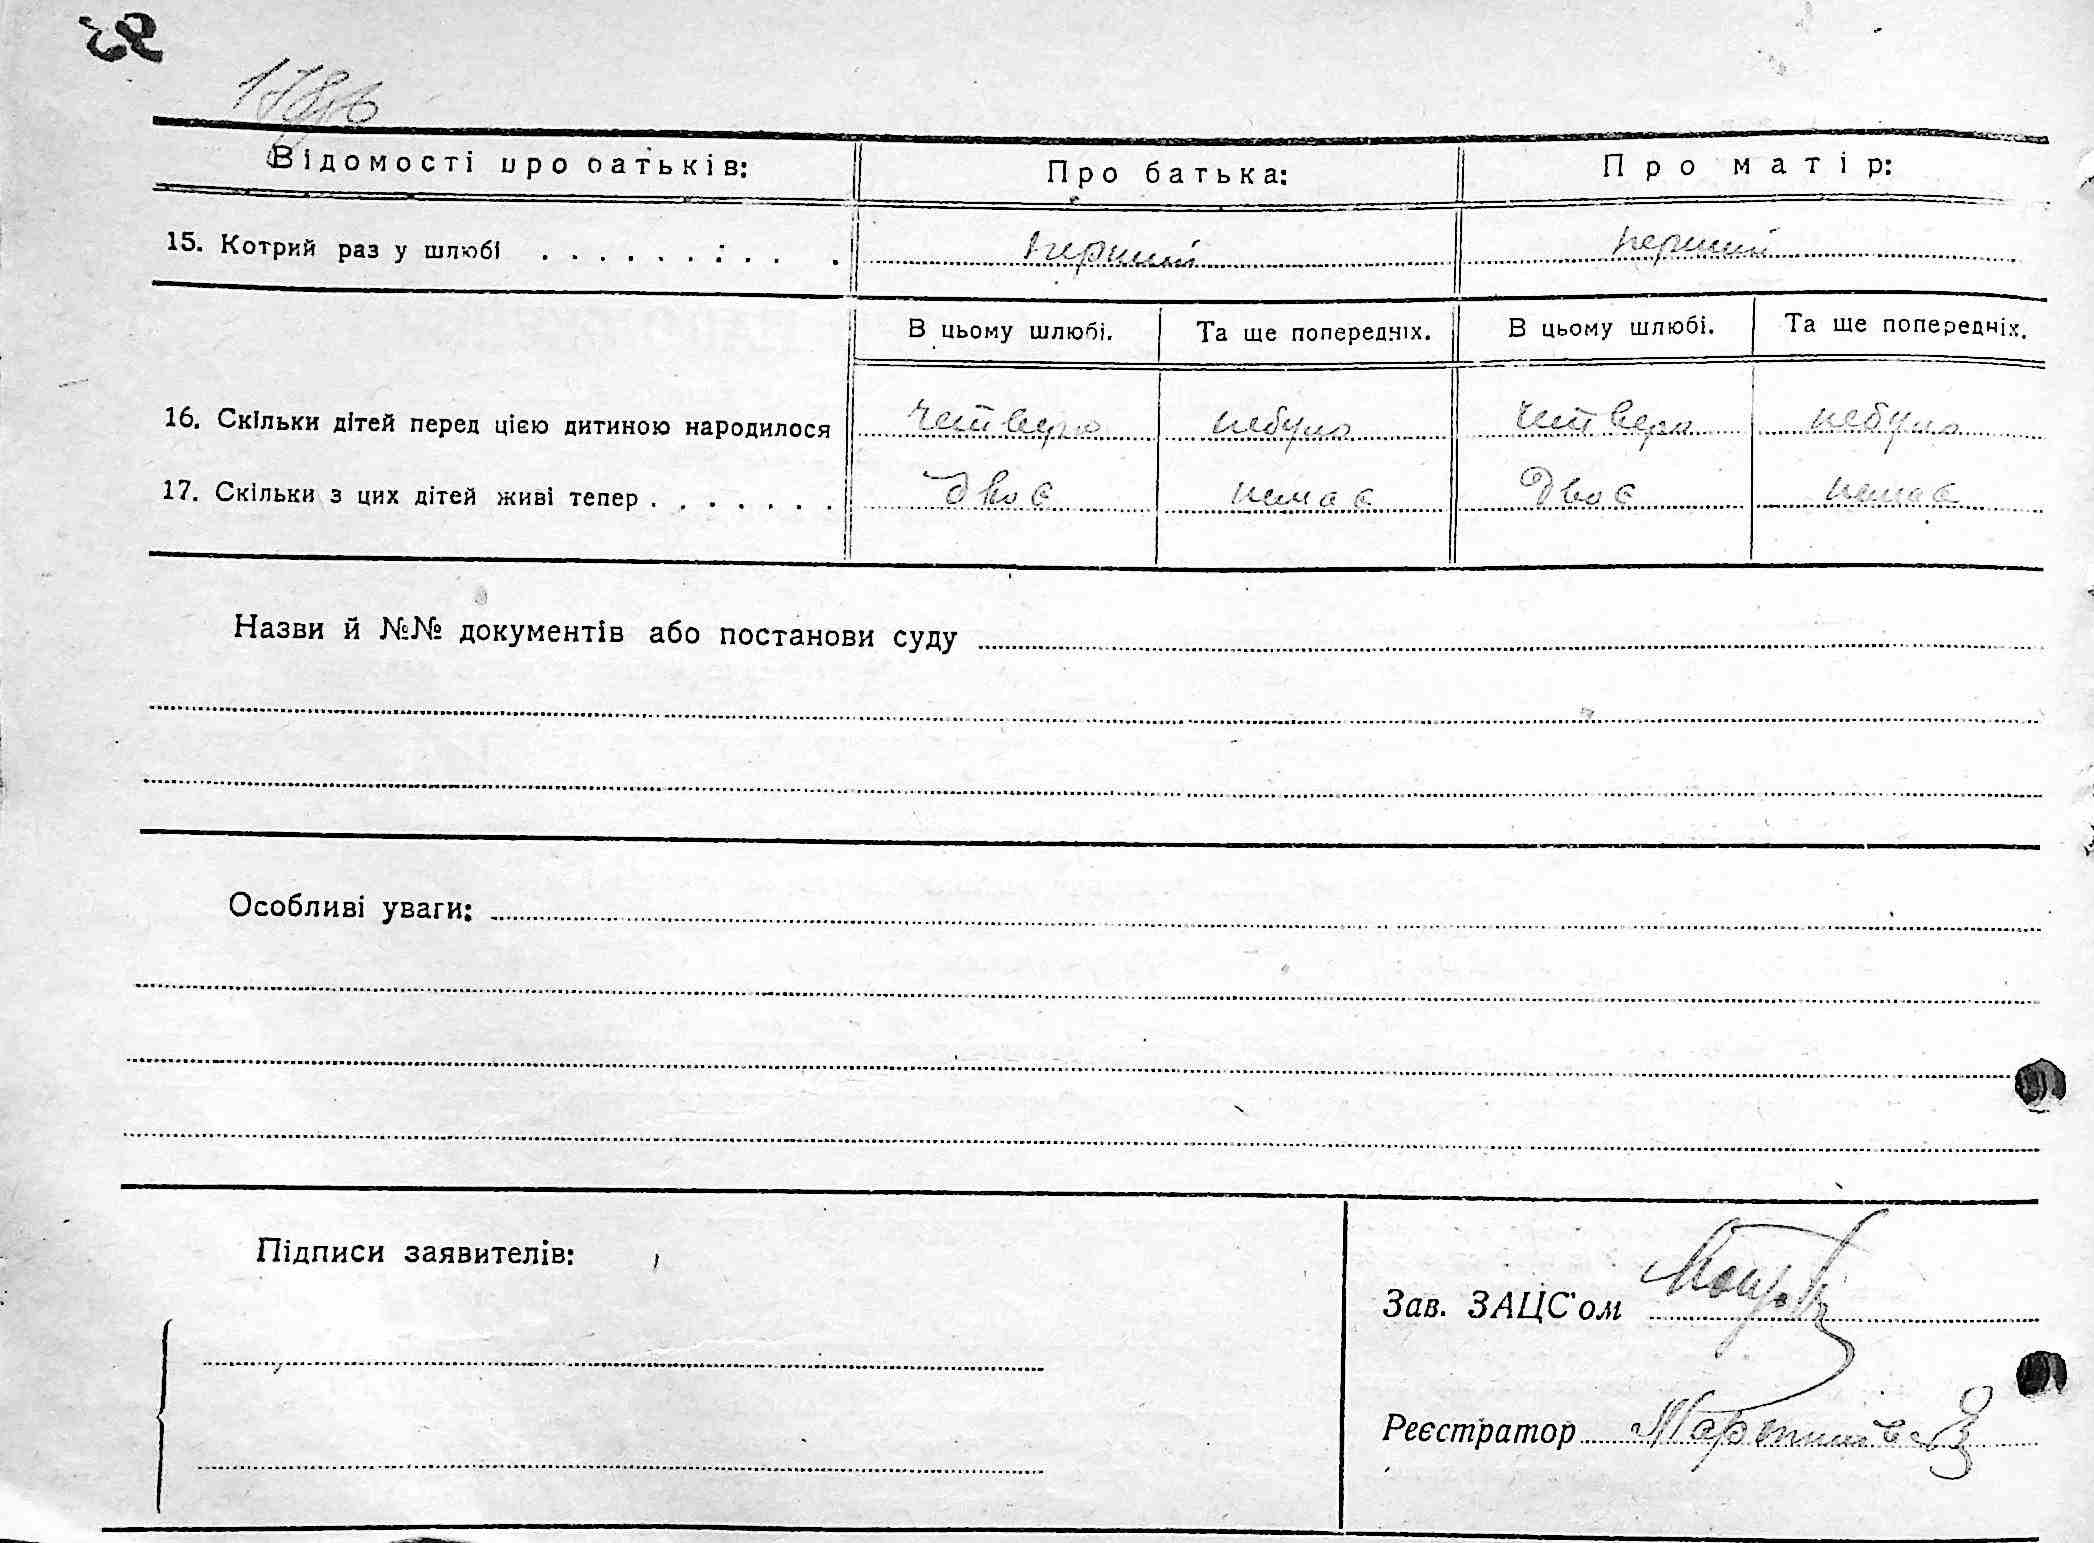 Відомості про батьків: Про батька: Про матір:
15. Котрий раз у шлюбі . . . . . . . . . . перший перший
В цьому шлюбі. Та ще попередніх. В цьому шлюбі. Та ще попередніх.
16. Скільки дітей перед цією дитиною народилося четверо небуло четверо небуло
17. Скільки з цих дітей живі тепер . . . . . . . двоє немає двоє немає
Назви й №№ документів або постанови суду
Особливі уваги:
Підписи заявителів:
Зав. ЗАЦС'ом
Реєстратор